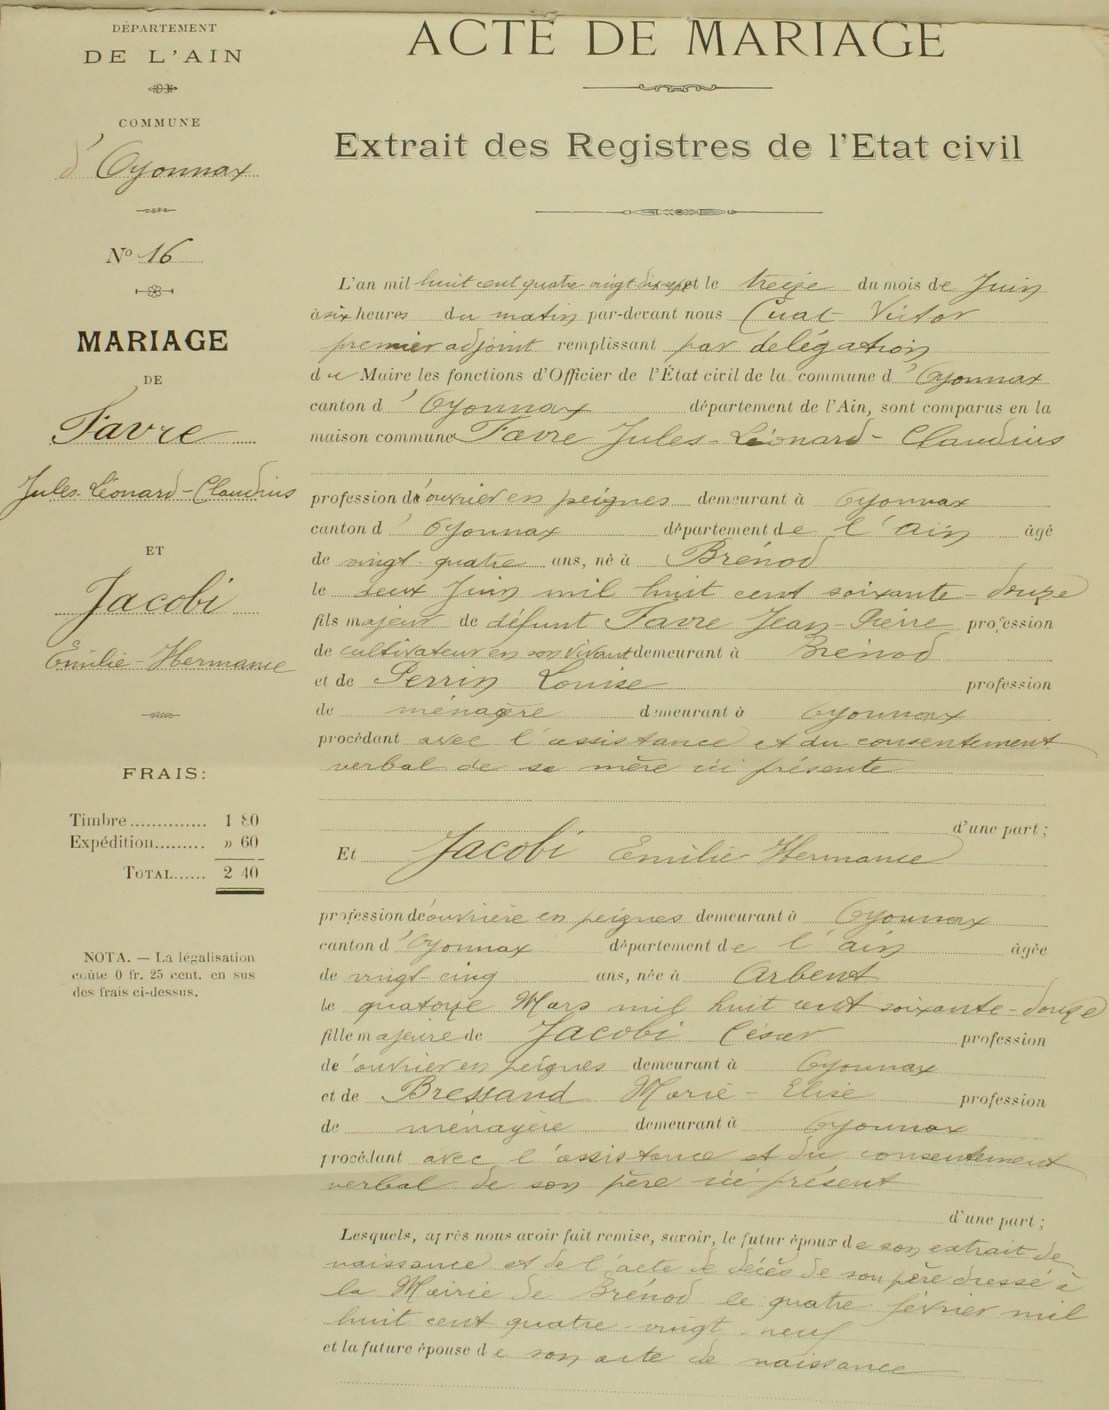 DÉPARTEMENT
DE L'AIN
COMMUNE
d'Oyonnax
No 16
MARIAGE
DE
Favre
Jules-Léonard-Claudius
ET
Jacobi
Emilie-Hermance
FRAIS:
Timbre.............. 1 80
Expédition......... » 60
TOTAL...... 2 40
NOTA. — La légalisation
coûte 0 fr. 25 cent. en sus
des frais ci-dessus.
ACTE DE MARIAGE
Extrait des Registres de l'Etat civil
L'an mil huit cent quatre vingt dix sept le treize du mois de Juin
à six heures du matin par-devant nous Cuat Victor
premier adjoint remplissant par délégation
du Maire les fonctions d'Officier de l'État civil de la commune d'Oyonnax
canton d'Oyonnax département de l'Ain, sont comparus en la
maison commune Favre Jules-Léonard-Claudius
profession d'ouvrier en peignes demeurant à Oyonnax
canton d'Oyonnax département de l'Ain âgé
de vingt quatre ans, né à Brénod
le deux Juin mil huit cent soixante-douze
fils majeur de défunt Favre Jean-Pierre profession
de cultivateur en son vivant demeurant à Brénod
et de Perrin Louise profession
de ménagère demeurant à Oyonnax
procédant avec l'assistance et du consentement
verbal de sa mère ici présente
d'une part;
Et Jacobi Emilie-Hermance
profession d'ouvrière en peignes demeurant à Oyonnax
canton d'Oyonnax département de l'ain âgée
de vingt cinq ans, née à Arbent
le quatorze Mars mil huit cent soixante-douze
fille majeure de Jacobi César profession
d'ouvrier en peignes demeurant à Oyonnax
et de Bressand Marie-Elise profession
de ménagère demeurant à Oyonnax
procédant avec l'assistance et du consentement
verbal de son père ici présent
d'une part;
Lesquels, après nous avoir fait remise, savoir, le futur époux de son extrait de
naissance et de l'acte de décès de son père dressé à
la Mairie de Brénod le quatre février mil
huit cent quatre-vingt-neuf
et la future épouse de son acte de naissance